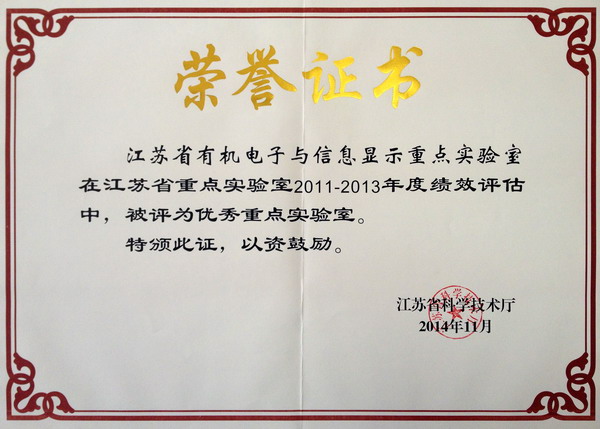 荣誉证书
江苏省有机电子与信息显示重点实验室
在江苏省重点实验室2011-2013年度绩效评估
中，被评为优秀重点实验室。
特颁此证，以资鼓励。
江苏省科学技术厅
2014年11月